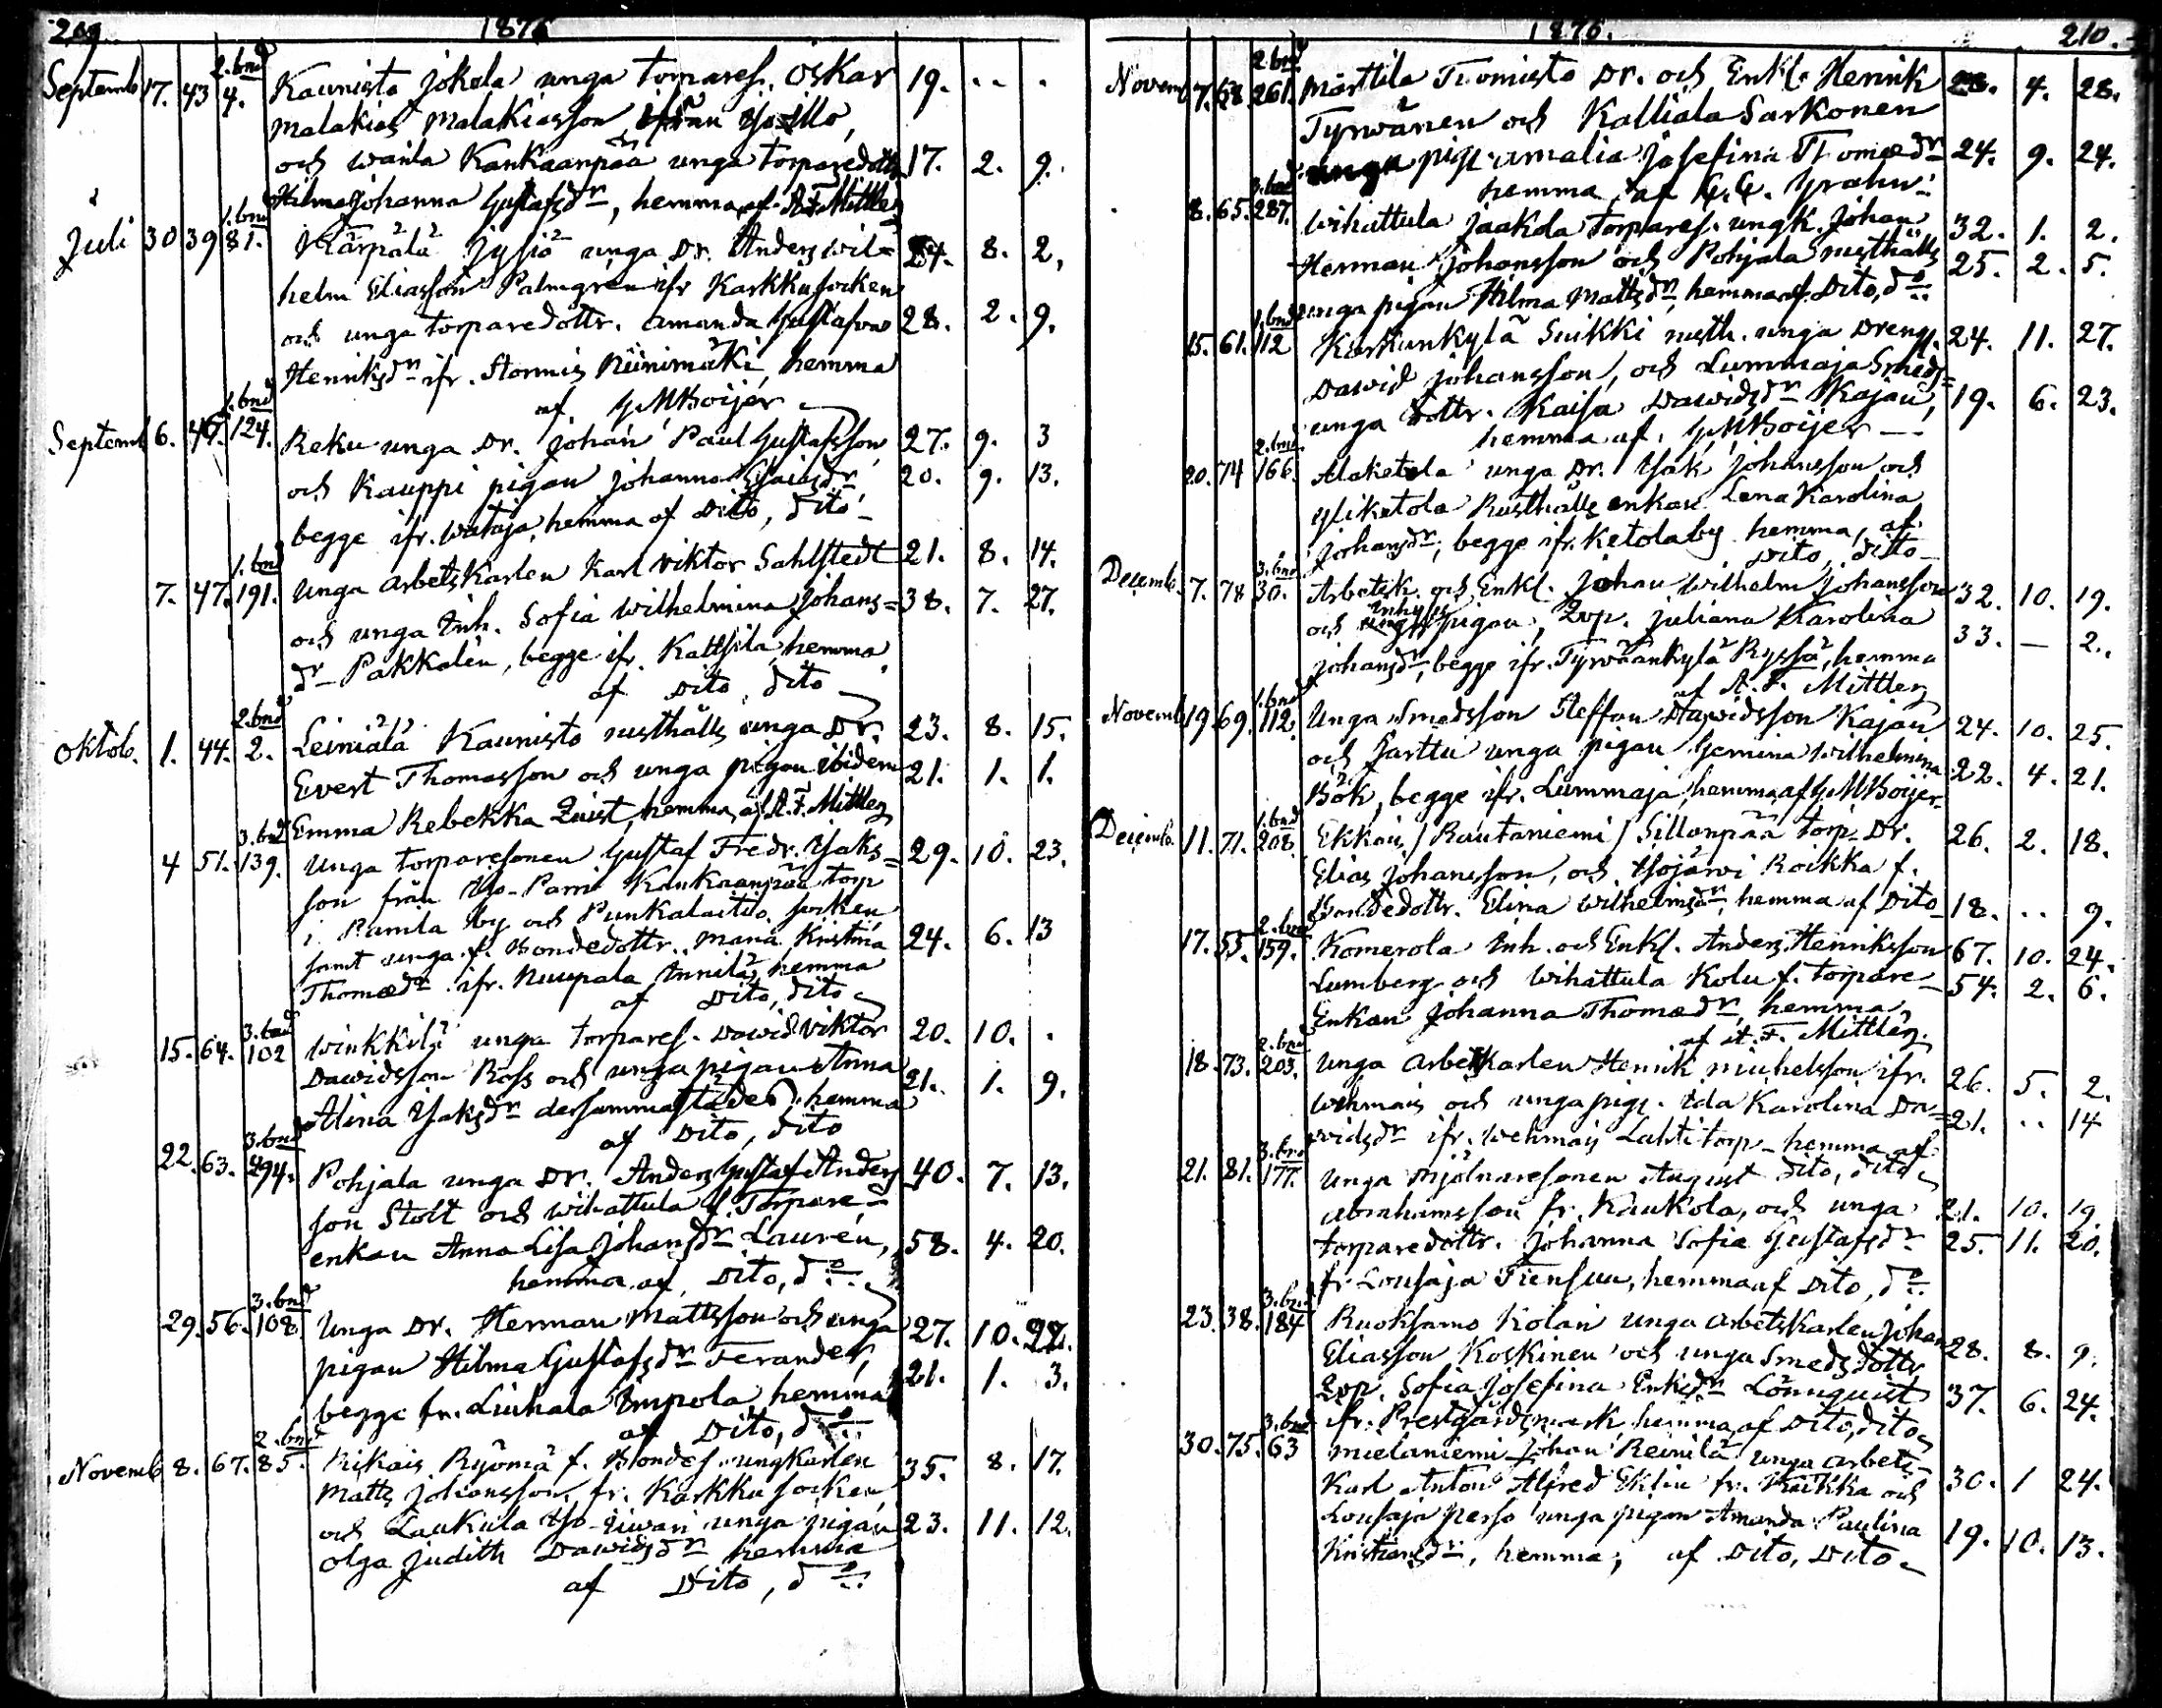 209. 1876
2. bnd
Septemb 17. 43 4. Kaunisto Jokela unga torpares. Oskar 19. .. .
Malakias Malakiasson, ifrån
och Kankaanpää unga torparedottr 17. 2. 9.
Hilma Johanna Gustafsdr, hemma, af A. F. Mittler
1. bnd
Juli 30 39 81. Kärpälä Jysiö unga Dr. Anders Wil= 24. 8. 2,
helm Eliasson Palmgren ifr Karkku socken
och unga torparedottr. Amanda Gustafva 28. 2. 9.
Henriksdr ifr. Stormis Niinimäki, hemma
af G M Boijer
1. bnd
Septemb 6. 46. 124. Reku unga Dr. Johan Paul Gustafsson 27. 9. 3
och Kauppi pigan Johanna Esaiasdr, 20. 9. 13.
begge ifr. Wataja, hemma af Dito, dito
1. bnd
7. 47. 191. Unga arbetskarlen Karl Viktor Sahlstedt 21. 8. 14.
och unga Inh. Sofia Wilhelmina Johans= 38. 7. 27.
dr Pakkalén, begge ifr. Kaltsila, hemma
af Dito, dito
2. bnd
Oktob. 1. 44. 2. Leiniälä Kaunisto rusthålls unga Dr. 23. 8. 15.
Evert Thomasson och unga pigan ibidem 21. 1. 1.
Emma Rebekka Quist, hemma, af A. F. Mittler
3. bnd
4 51. 139. Unga torparesonen Gustaf Fredr. Isaks= 29. 10. 23.
son från Iso-Parri Kankaanpää torp
i Parrila by och Punkalaitio socken
samt unga f. Bondedottr. Maria Kristina 24. 6. 13
Thomædr ifr. Nuupala Annila, hemma
af Dito, dito
3. bnd
15. 64. 102 Winkkilä unga torpares. Dawid Viktor 20. 10. .
Dawidsson Ross och unga pigan Anna 21. 1. 9.
Alina Isaksdr dersammastädes, hemma
af Dito, dito
3. bnd
22. 63. 294. Pohjala unga Dr. Anders Gustaf Anders 40. 7. 13.
son Stolt och Wihattula f. Torpare=
enkan Anna Lisa Johansdr Laurén, 58. 4. 20.
hemma af, Dito, do
3. bnd
29. 56. 108. Unga Dr. Herman Mattsson och unga 27. 10. 22.
pigan Hilma Gustafsdr Ferander, 21. 1. 3.
begge fr. Liuhala Impola, hemma
af Dito, do
2. bnd
Novemb 8. 67. 85. Kikais Ryömä f. Bondes. ungkarlen 35. 8. 17.
Matts Johansson, fr. Karkku socken
och Laukula Iso- unga pigan 23. 11. 12.
Olga Judith Dawidsdr hemma
af Dito, do
1876. 210.
2. bnd
Novem 7. 68. 261. Märttilä Tuomisto Dr. och Enkl. Henrik 28. 4. 28.
Tyrwänen och Kalliala Sarkonen
unga pig. Amalia Josefina Thomædr 24. 9. 24.
hemma, af G. G. Grahn
3. bnd
8. 65. 287. Wihattula Jaakola torpares. ungk. Johan 32. 1. 2.
Herman Johansson och Pohjala rusthålls 25. 2. 5.
unga pigan Hilma Mattsdr, hemma af Dito, do
1. bnd
15. 61. 112 Karkunkylä Suikki rusth. unga Dreng. 24. 11. 27.
Dawid Johansson, och Lummaja Smeds=
unga dottr. Kaisa Dawidsdr Kajan, 19. 6. 23.
hemma af, G M Boijer
2. bnd
20. 74 166. Alaketola unga Dr. Isak Johansson och
Yliketola Rusthålls enkan Lena Karolina
Johansdr, begge ifr. Ketola by hemma, af
Dito, ditto
3. bnd
Decemb. 7. 78 30. Arbetsk. och Enkl. Johan Wilhelm Johansson 32. 10. 19.
och Inhyses pigan, Qvp. Juliana Karolina 33. — 2.
Johansdr, begge ifr. Tyrwäänkylä Ryssä, hemma
af A. F. Mittler
1. bnd
Novemb 19. 69. 112. Unga Smedsson Steffan Dawidsson Kajan 24. 10. 25.
och Jarttu unga pigan Gemina Wilhelmina 22. 4. 21.
Bök, begge ifr. Lummaja, hemma, af G M Boijer
1. bnd
Decemb. 11. 71. 208. Ekkois / Rautaniemi / Sillanpää torp. Dr. 26. 2. 18.
Elias Johansson, och Isojärvi Roikka f.
Bondedottr. Elina Wilhelmsdr, hemma af Dito 18. .. 9.
2. bnd
17. 55. 159. Komerola Inh. och Enkl. Anders Henriksson 67. 10. 24.
Lumberg och Wihattula Kolu f. torpare 54. 2. 6.
Enkan Johanna Thomædr, hemma
af A. F. Mittler
2. bnd
18. 73. 203. Unga Arbetskarlen Henrik Michelsson ifr. 26. 5. 2.
Wehmais och unga pig. Ida Karolina Da= 21. .. 14
vidsdr ifr. Wehmais Lahti torp - hemma af
3. bnd Dito, dito
21. 81. 177. Unga Mjölnaresonen August
Abrahamsson fr. Kaukola, och unga 21. 10. 19
torparedottr. Johanna Sofia Gustafsdr 25. 11. 20.
fr. Lousaja Tiensuu, hemma af Dito, do
3. bnd
23. 38. 184 Ruoksamo Kolari unga arbetskarlen Johan
Eliasson Koskinen och unga Smedsdottr 28. 8. 9.
Qvp. Sofia Josefina Eriksdr Lönnquist 37. 6. 24.
ifr. Prestgårdsmark, hemma, af Dito, dito
3. bnd
30. 75. 63 Mielaniemi Johan Reinilä unga arbets
Karl Anton Alfred Eklin fr. Kaikka och 30. 1 24.
Lousaja Perho unga pigan Amanda Paulina
Kristiansdr, hemma, af Dito, Dito 19. 10. 13.